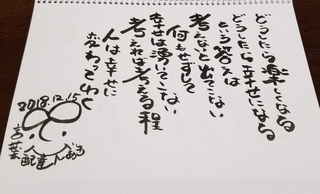 どうしたら楽しくなる
どうしたら幸せになる
という答えは
考えないと出てこない
何もせずして
幸せは湧いてこない
考えれば考える程
人は幸せに
変わってゆく
2018.12.15
言葉
配達人